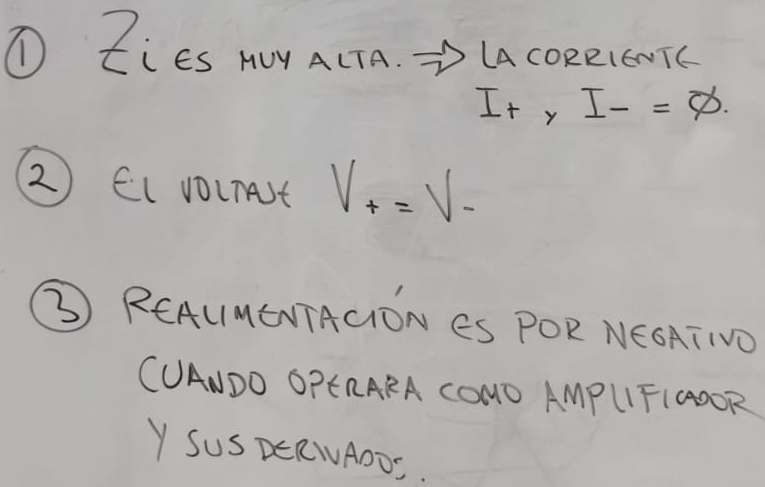 ① Zi ES MUY ALTA. ⇒ LA CORRIENTE
I+ y I- = Ø.
② El VOLTAJE V+ = V-
③ REALIMENTACIÓN ES POR NEGATIVO
CUANDO OPERARA COMO AMPLIFICADOR
Y SUS DERIVADOS.